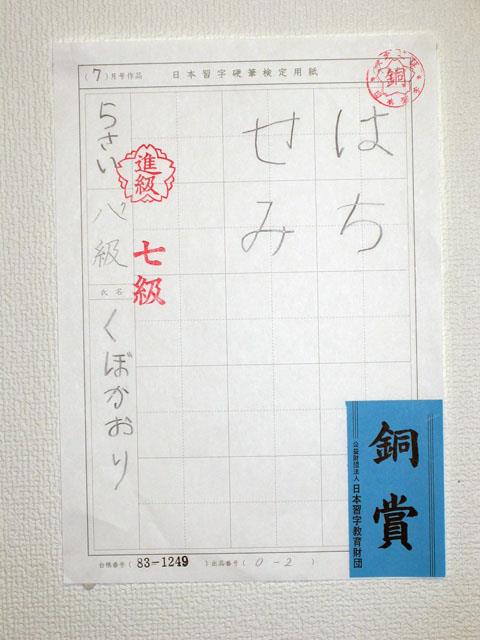 (7)月号作品 日本習字硬筆検定用紙
銅
はち
せみ
進級
七級
5さい 八級
氏名
くぼかおり
台帳番号(83-1249)出品番号(0-2)
銅賞
公益財団法人 日本習字教育財団